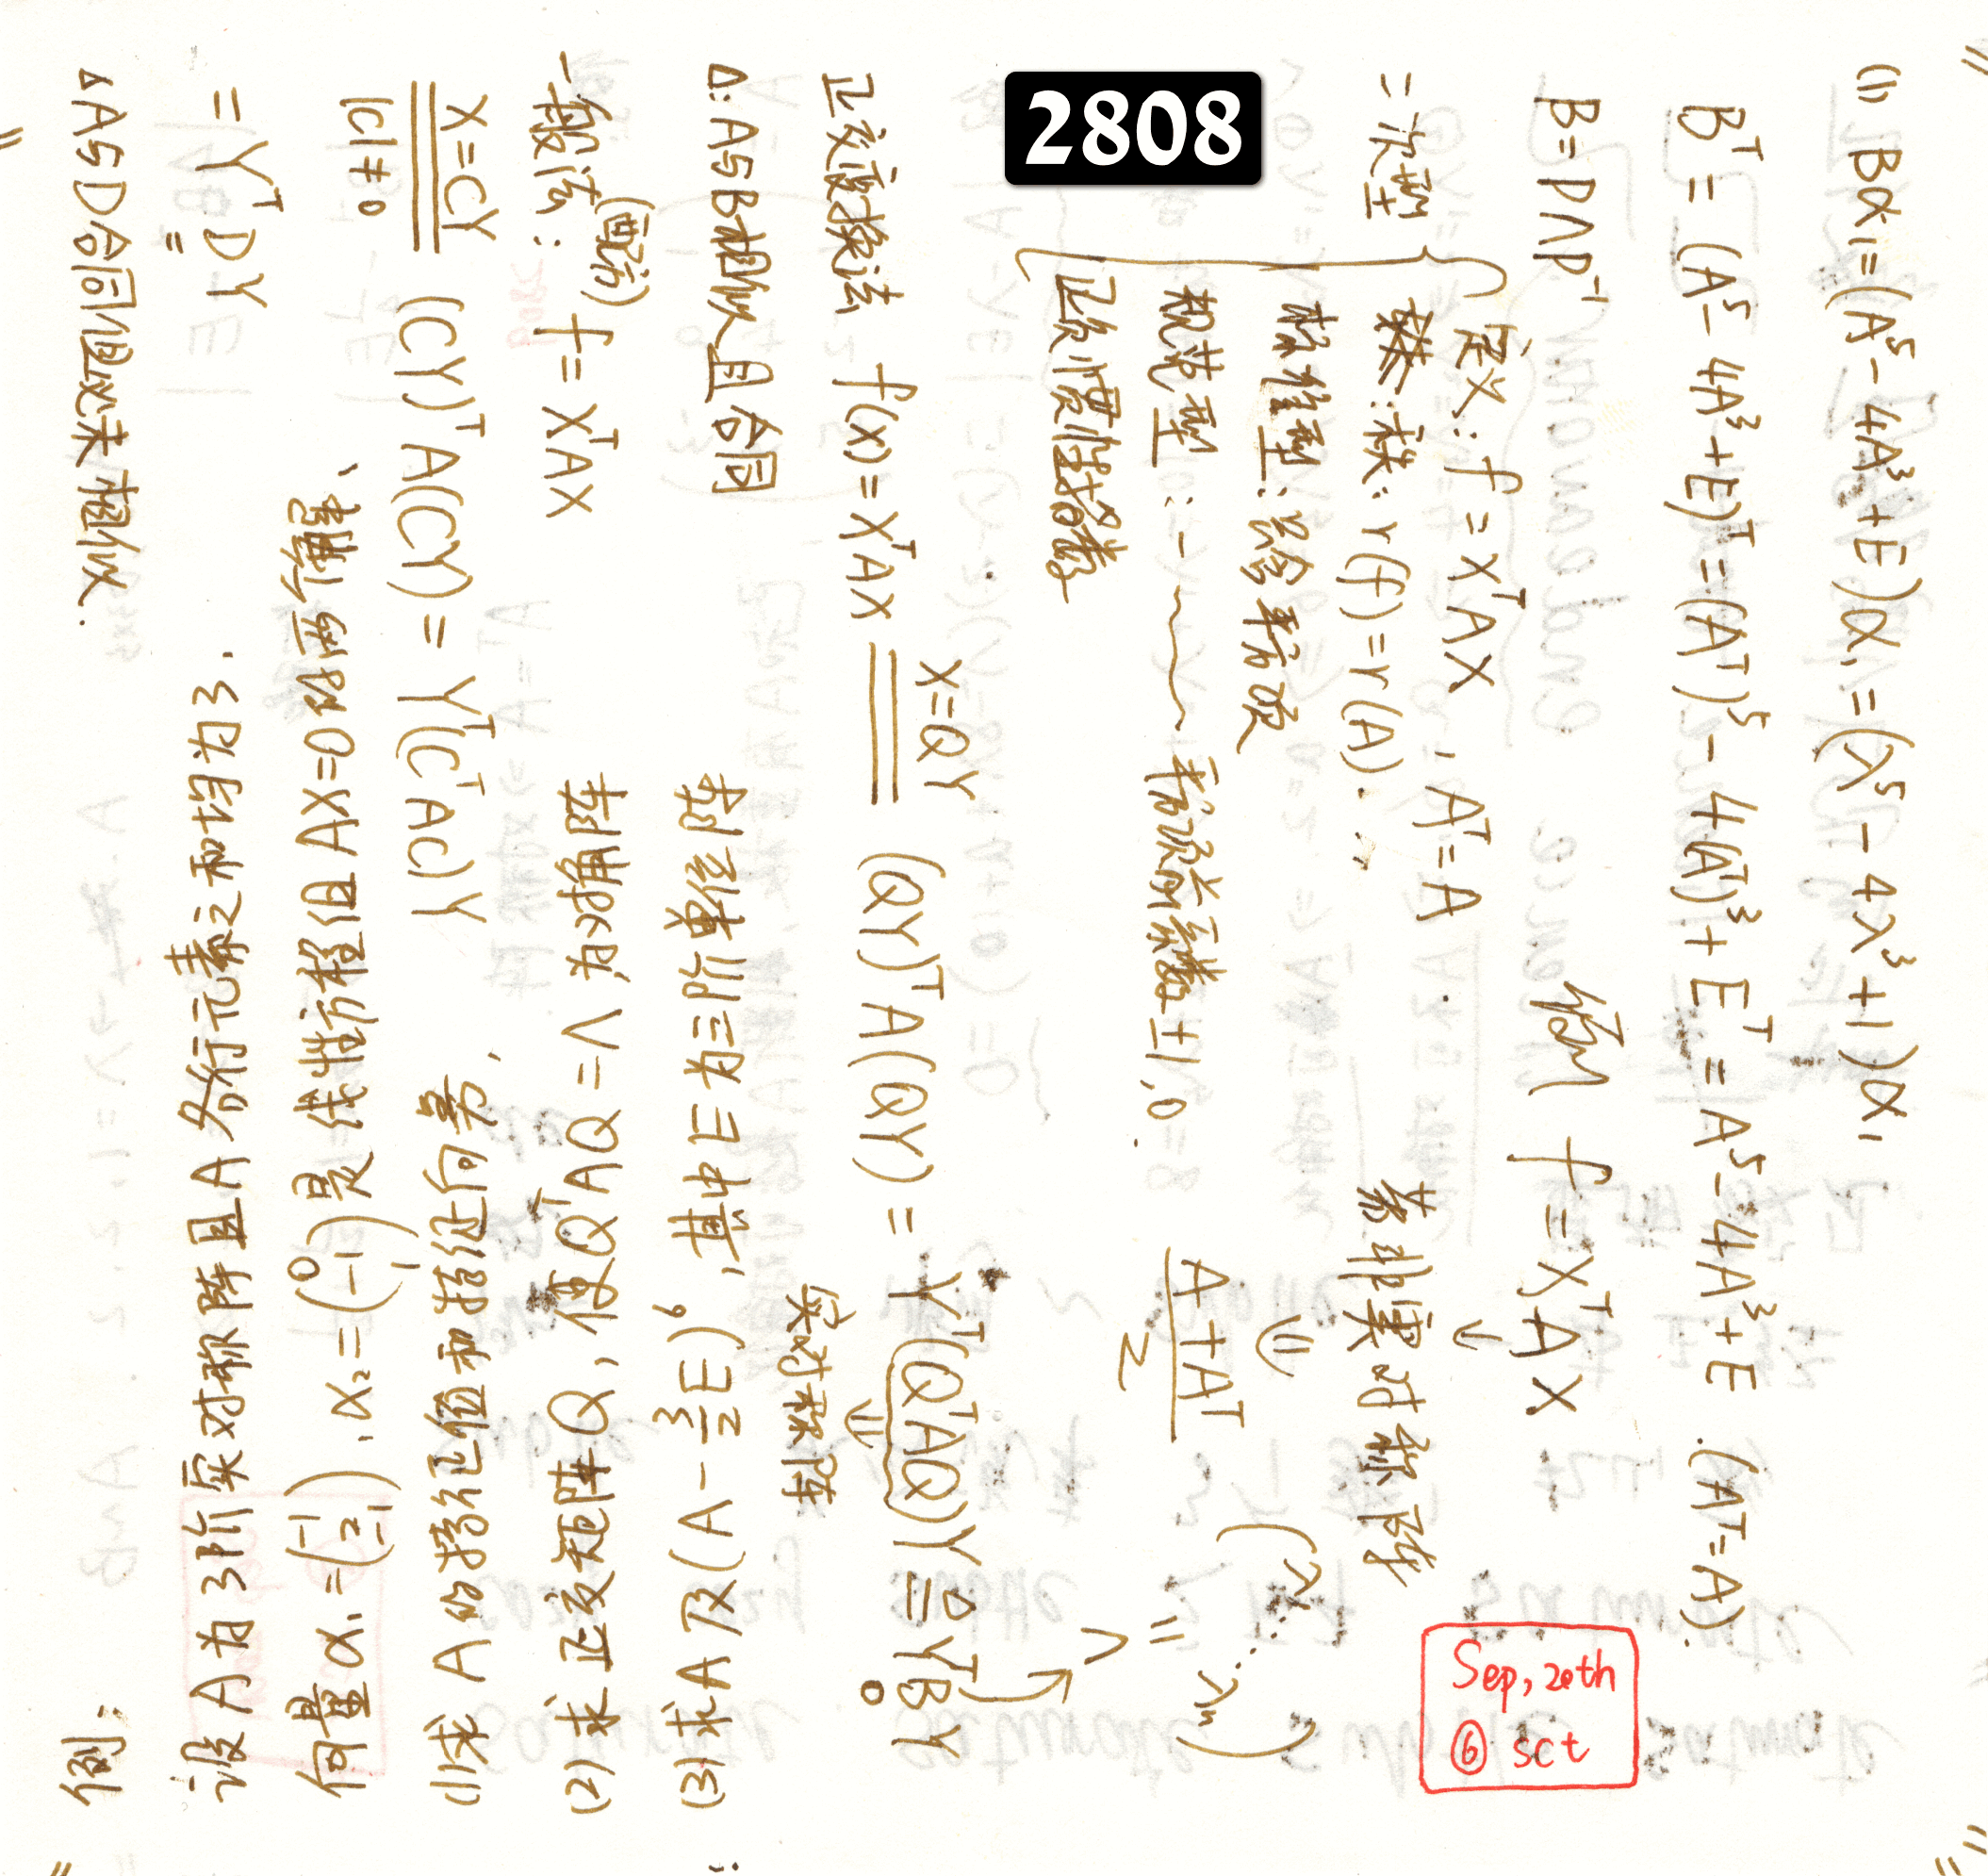 2808
(1) Bα₁=(A⁵-4A³+E)α₁=(λ⁵-4λ³+1)α₁
Bᵀ=(A⁵-4A³+E)ᵀ=(Aᵀ)⁵-4(Aᵀ)³+Eᵀ=A⁵-4A³+E.(Aᵀ=A).
B=PΛP⁻¹
例 f=XᵀAX
↓
若非实对称阵
⇓
A+Aᵀ
2
二次型
定义:f=XᵀAX,Aᵀ=A
秩:r(f)=r(A).
标准型:只含平方项
规范型:~平方项前系数±1,0.
正负惯性指数
正交变换法 f(x)=XᵀAX X=QY (QY)ᵀA(QY)=Yᵀ(QᵀAQ)Y=YᵀBY
实对称阵
Λ
=
(λ₁⋱λₙ)
Δ:A与B相似且合同
一般法:(配方) f=XᵀAX
X=CY
|C|≠0
(CY)ᵀA(CY)=Yᵀ(CᵀAC)Y
=YᵀDY
ΔA与D合同但必未相似.
例:
设A为3阶实对称阵且A各行元素之和均为3.
向量α₁=(-1 2 -1),α₂=(0 -1 1)是线性方程组AX=0的两个解、
(1)求A的特征值和特征向量,
(2)求正交矩阵Q,使Q⁻¹AQ=Λ为对角阵
(3)求A及(A-3/2E)⁶,其中E为三阶单位阵
Sep, 20th
⑥ sct